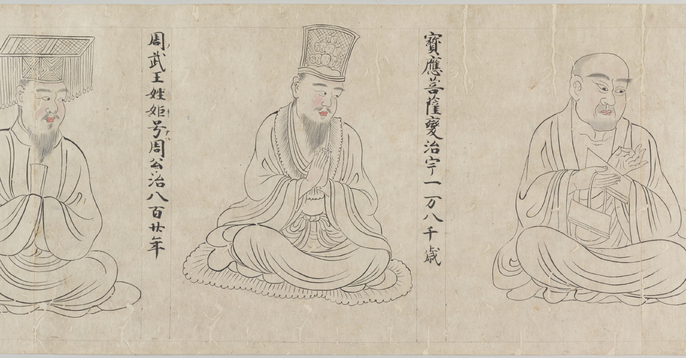 寳應菩薩變治宇一万八千歳
周武王姓姫号周公治八百廿年